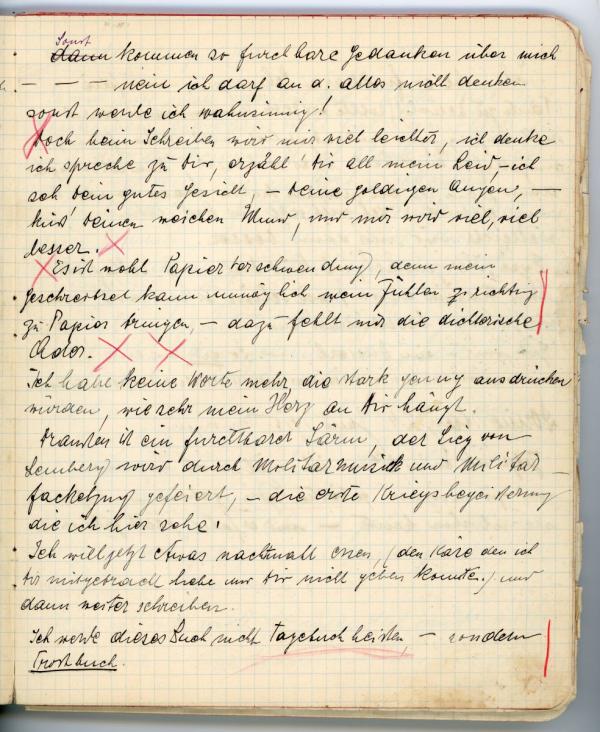 Sonst
dann kommen so furchbare Gedanken über mich
— — — nein ich darf an d. alles nicht denken
sonst werde ich wahnsinnig!
Doch beim Schreiben wird mir viel leichter, ich denke
ich spreche zu Dir, erzähl' Dir all mein Leid, – ich
seh Dein gutes Gesicht, – Deine goldigen Augen, —
küss' Deinen weichen Mund, und mir wird viel, viel
besser.
Es ist wohl Papierverschwendung, denn mein
Geschreibsel kann unmöglich mein Fühlen so richtig
zu Papier bringen, – dazu fehlt mir die dichterische
Ader.
Ich habe keine Worte mehr, die stark genug ausdrücken
würden, wie sehr mein Herz an Dir hängt.
Draußen ist ein furchtbarer Lärm, der Sieg von
Lemberg wird durch Militärmusik und Militär-
fackelzug gefeiert, – die erste Kriegsbegeisterung
die ich hier sehe!
Ich will jetzt etwas nachtmall essen, (den Käse den ich
Dir mitgebracht habe und Dir nicht geben konnte.) und
dann weiter schreiben.
Ich werde dieses Buch nicht Tagebuch heisten, – sondern
Trostbuch.